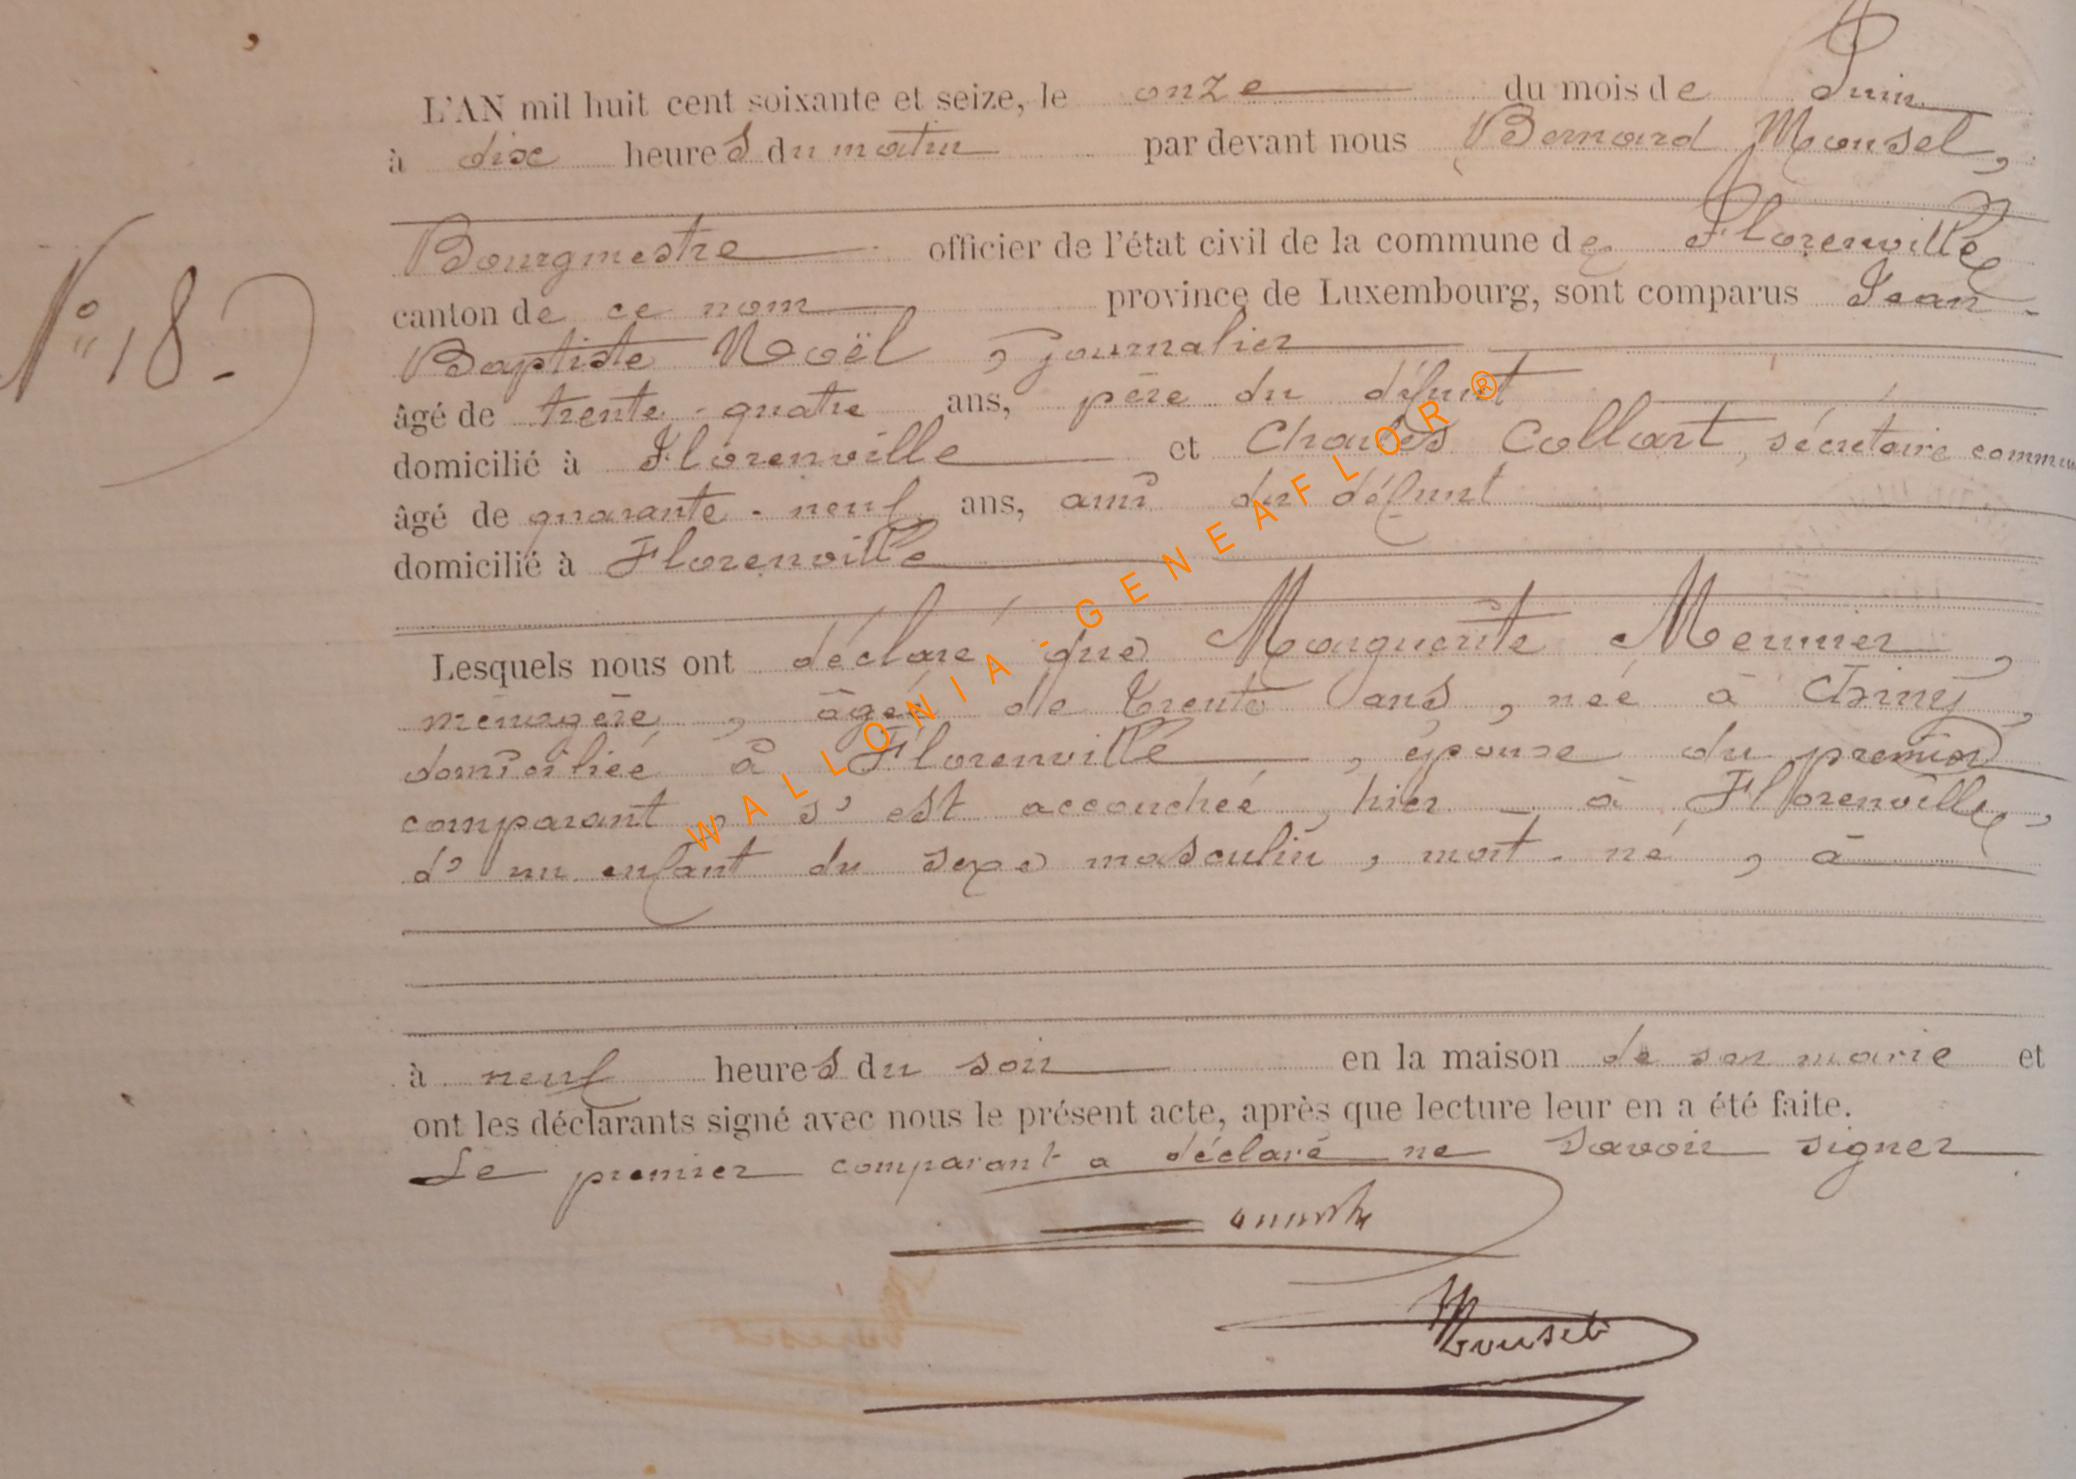 L'AN mil huit cent soixante et seize, le onze du mois de Juin
à dix heures du matin par devant nous Bernard Mousel,
Bourgmestre officier de l'état civil de la commune de Florenville
canton de ce nom province de Luxembourg, sont comparus Jean-
Baptiste Noël, journalier
N° 18.
âgé de trente-quatre ans, père du défunt
domicilié à Florenville et Charles Collart, secrétaire commu
âgé de quarante-neuf ans, ami du défunt
domicilié à Florenville
Lesquels nous ont déclaré que Marguerite Meunier,
ménagère, âgée de trente ans, née à Chiny,
domiciliée à Florenville, épouse du premier
comparant, s'est accouchée, hier - à Florenville,
d'un enfant du sexe masculin, mort-né, à
à neuf heures du soir en la maison de son marie et
ont les déclarants signé avec nous le présent acte, après que lecture leur en a été faite.
Le premier comparant a déclaré ne savoir signer
Mousel
WALLONIA-GENEAFLOR®